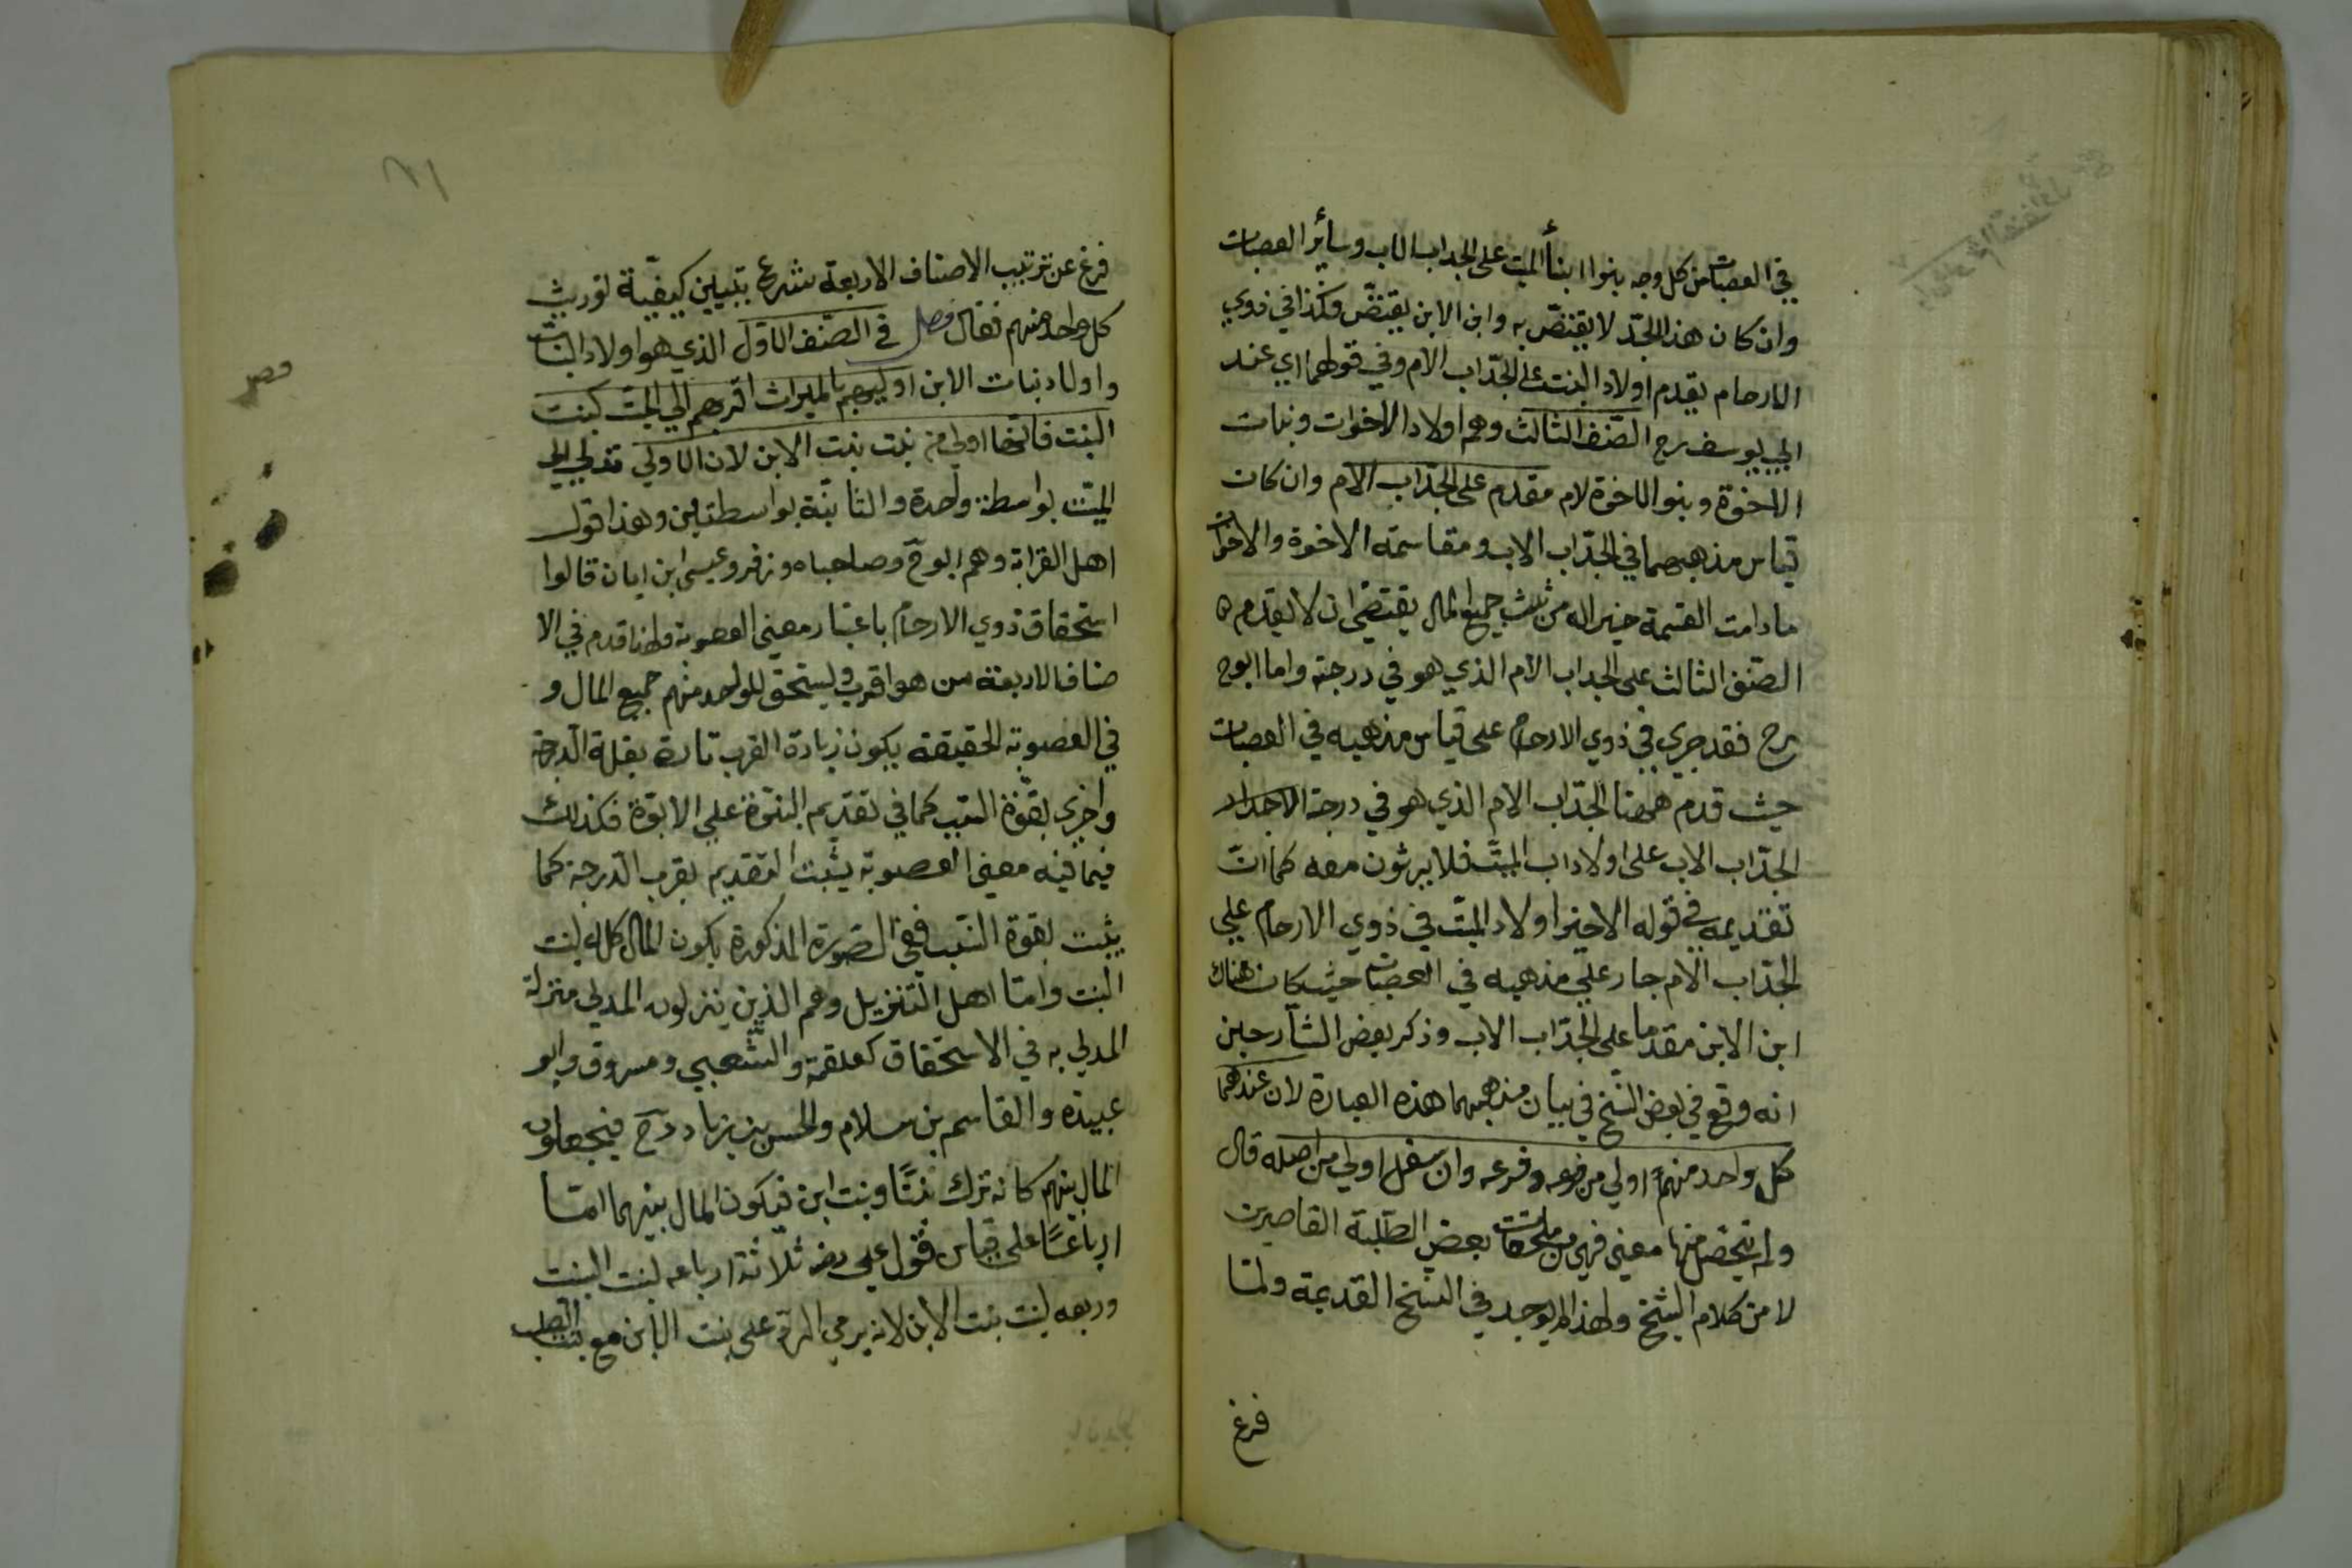 في العصبات من كل وجه بنوا ابنأ الميت على الجد اب الاب وسائر العصبات
وان كان هذا الجدّ لا يقتضّ به وابن الابن يقتضّ فكذا في ذوي
الارحام يقدم اولاد البنت على الجدّ اب الام وفي قولهما اي عند
ابي يوسف رح الصّنف الثالث وهم اولاد الاخوات وبنات
الاخوة وبنو الاخوة لام مقدم على الجدّ اب الام وان كان
قياس مذهبهما في الجدّ اب الاب ومقاسمته الاخوة والاخوات
مادامت القسمة خيرا له من ثلث جميع المال يقتضي ان لا يقدم
الصّنف الثالث على الجد اب الام الذي هو في درجته واما ابوح
رح فقد جرى في ذوي الارحام على قياس مذهبه في العصبات
حيث قدم ههنا الجدّ اب الام الذي هو في درجة الاجداد
الجدّ اب الاب على اولاد اب الميّت فلا يرثون معه كما انّ
تقديمه في قوله الاخير اولاد الميّت في ذوي الارحام على
الجدّ اب الام جار على مذهبه في العصبات حيث كان هناك
ابن الابن مقدما على الجدّ اب الاب وذكر بعض الشّارحين
انه وقع في بعض النّسخ في بيان مذهبهما هذه العبارة لان عندهما
كل واحد منهم اولي من فرعه وفرعه وان سفل اولي من اصله قال
ولم يتحصّل منها معنى فهي من ملحقات بعض الطّلبة القاصرين
لا من كلام الشّيخ ولهذا لم يوجد في النسخ القديمة ولمّا
فرغ
فرغ عن ترتيب الاصناف الاربعة شرع بتبيين كيفيّة توريث
كل واحد منهم فقال فصل في الصّنف الاوّل الذي هو اولاد البنات
واولاد بنات الابن اوليهم بالميراث اقربهم الي الميّت كبنت
البنت فانّها اولي من بنت بنت الابن لان الاولي تدلي الي
الميّت بواسطة واحدة والثانية بواسطتين وهذا قول
اهل القرابة وهم ابوح وصاحباه وزفر وعيسى ابن ابان قالوا
استحقاق ذوي الارحام باعتبار معنى العصوبة ولهذا قدم في الا
صناف الاربعة من هو اقرب ويستحق للواحد منهم جميع المال و
في العصوبة الحقيقة يكون زيادة القرب تارة بقلة الدرجة
واخرى بقوّة السّبب كما في تقديم البنوّة على الابوّة فكذلك
فيما فيه معنى العصوبة يثبت التقديم بقرب الدّرجة كما
يثبت بقوة السّبب ففي الصّورة المذكورة يكون المال كله لبنت
البنت وامّا اهل التّنزيل وهم الذين ينزلون المدلي منزلة
المدلي به في الاستحقاق كعلقمة والشّعبي ومسروق وابو
عبيدة والقاسم بن سلام والحسن بن زياد رح فيجعلون
المال بينهم كانه ترك بنتًا وبنت ابن فيكون المال بينهما امّا
ارباعًا على قياس قول علي رضه ثلاثة ارباعه لبنت البنت
وربعه لبنت بنت الابن لانه يرمي الرّد على بنت الابن مع بنت الصّلب
فصل